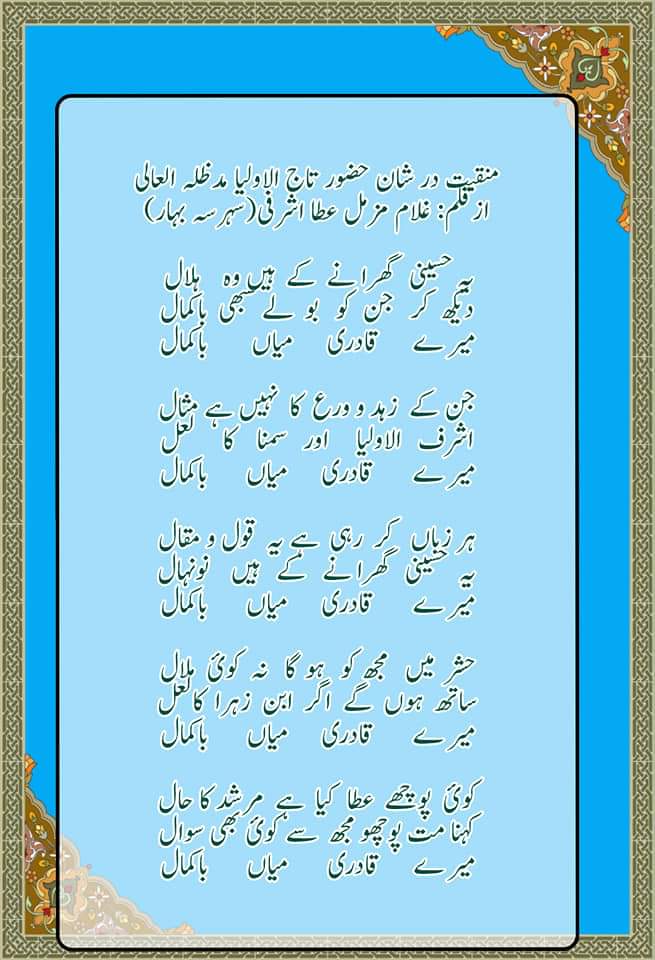 منقبت در شان حضور تاج الاولیا مدظلہ العالی
از قلم: غلام مزمل عطا اشرفی (سہرسہ بہار)
یہ حسینی گھرانے کے ہیں وہ ہلال
دیکھ کر جن کو بولے سبھی باکمال
میرے قادری میاں باکمال
جن کے زہد و ورع کا نہیں ہے مثال
اشرف الاولیا اور سمنا کا لعل
میرے قادری میاں باکمال
ہر زباں کر رہی ہے یہ قول و مقال
یہ حسینی گھرانے کے ہیں نونہال
میرے قادری میاں باکمال
حشر میں مجھ کو ہو گا نہ کوئ ملال
ساتھ ہوں گے اگر ابن زہرا کا لعل
میرے قادری میاں باکمال
کوئ پوچھے عطا کیا ہے مرشد کا حال
کہنا مت پوچھو مجھ سے کوئ بھی سوال
میرے قادری میاں باکمال